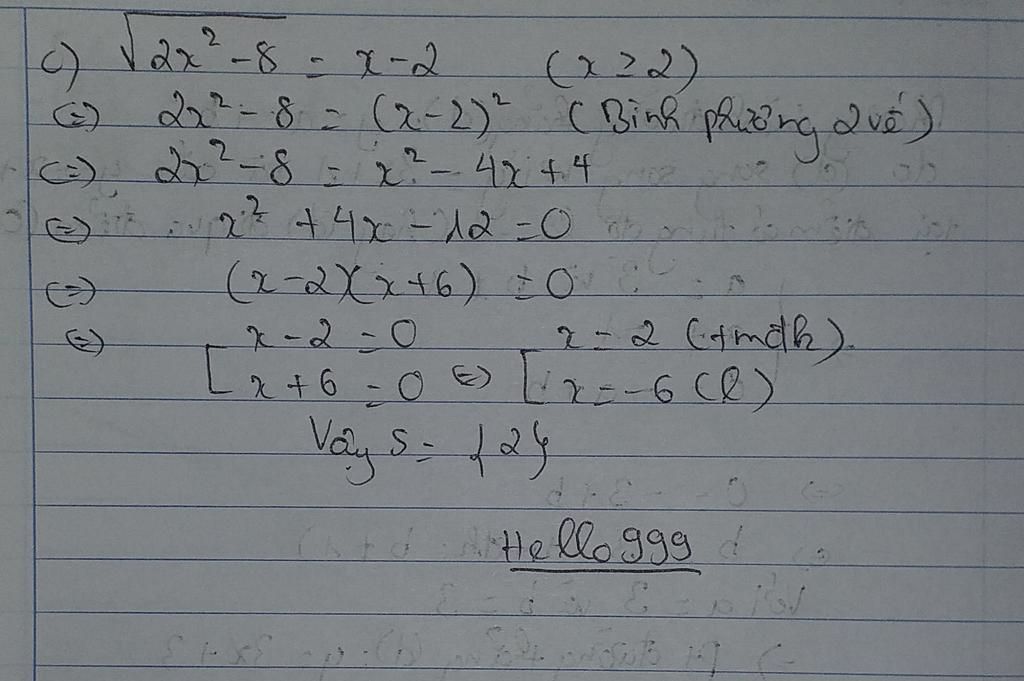 c) √(2x² - 8) = x - 2 (x ≥ 2)
(=) 2x² - 8 = (x - 2)² (Bình phương 2 vế)
(=) 2x² - 8 = x² - 4x + 4
(=) x² + 4x - 12 = 0
(=) (x - 2)(x + 6) = 0
(=) [ x - 2 = 0 (=) [ x = 2 (tmđk).
x + 6 = 0 x = -6 (l)
Vậy S = {2}
Hello ggg